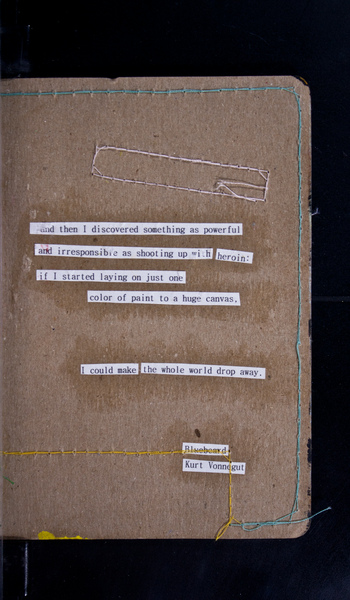 and then I discovered something as powerful
and irresponsible as shooting up with heroin:
if I started laying on just one
color of paint to a huge canvas,
I could make the whole world drop away.
Bluebeard
Kurt Vonnegut